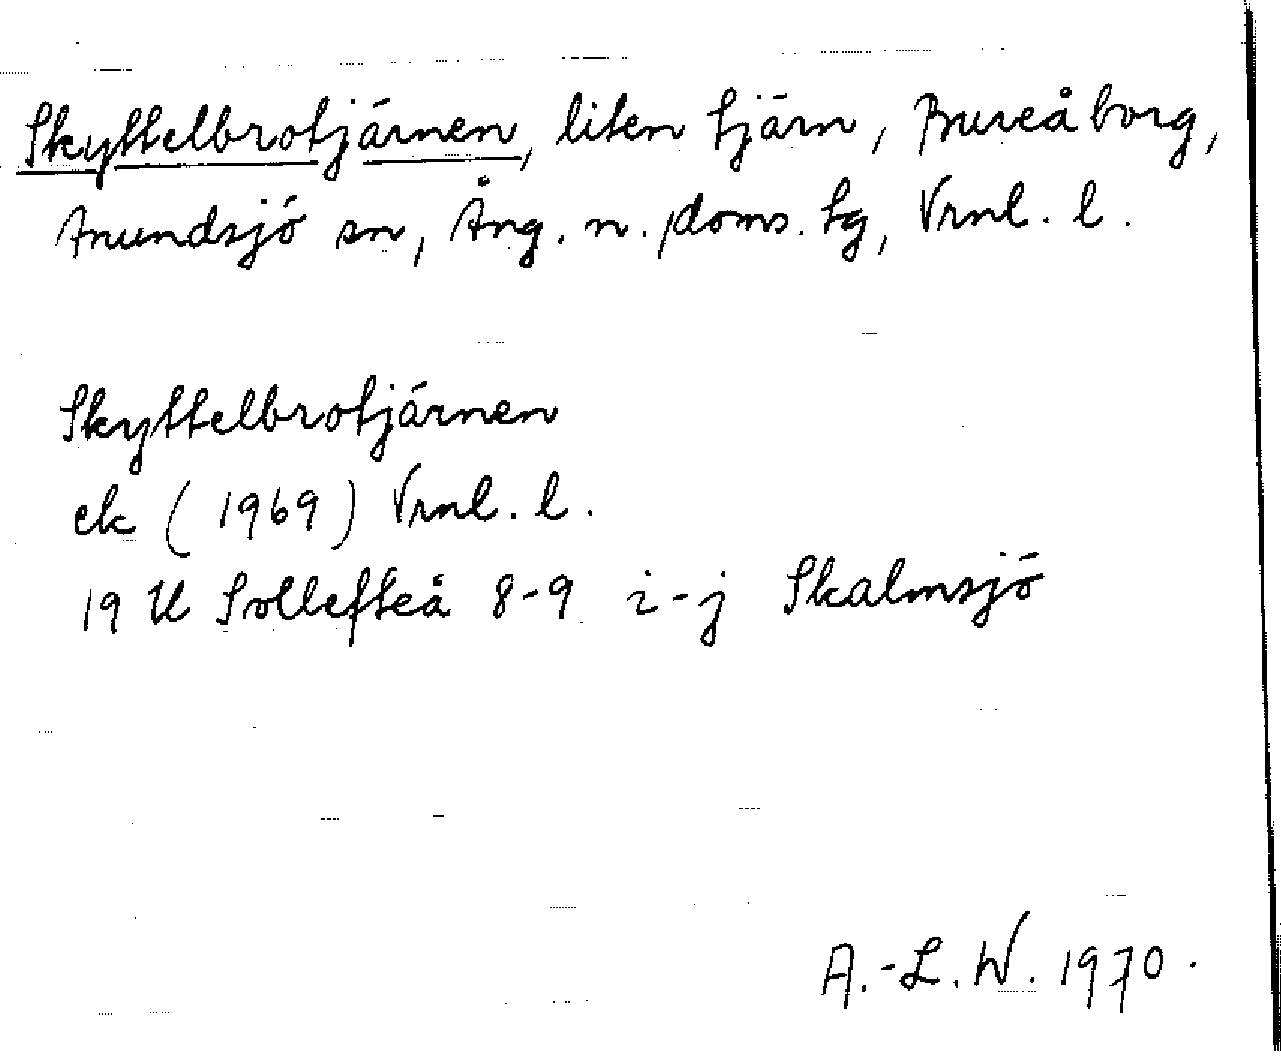 Skyttelbrotjärnen, liten tjärn, Bureåborg,
Anundsjö sn, Ång. n. doms. tg, Vrnl. l.
Skyttelbrotjärnen
ek (1969) Vrnl. l.
19 H Sollefteå 8-9 i-j Skalmsjö
A.-L. W. 1970.